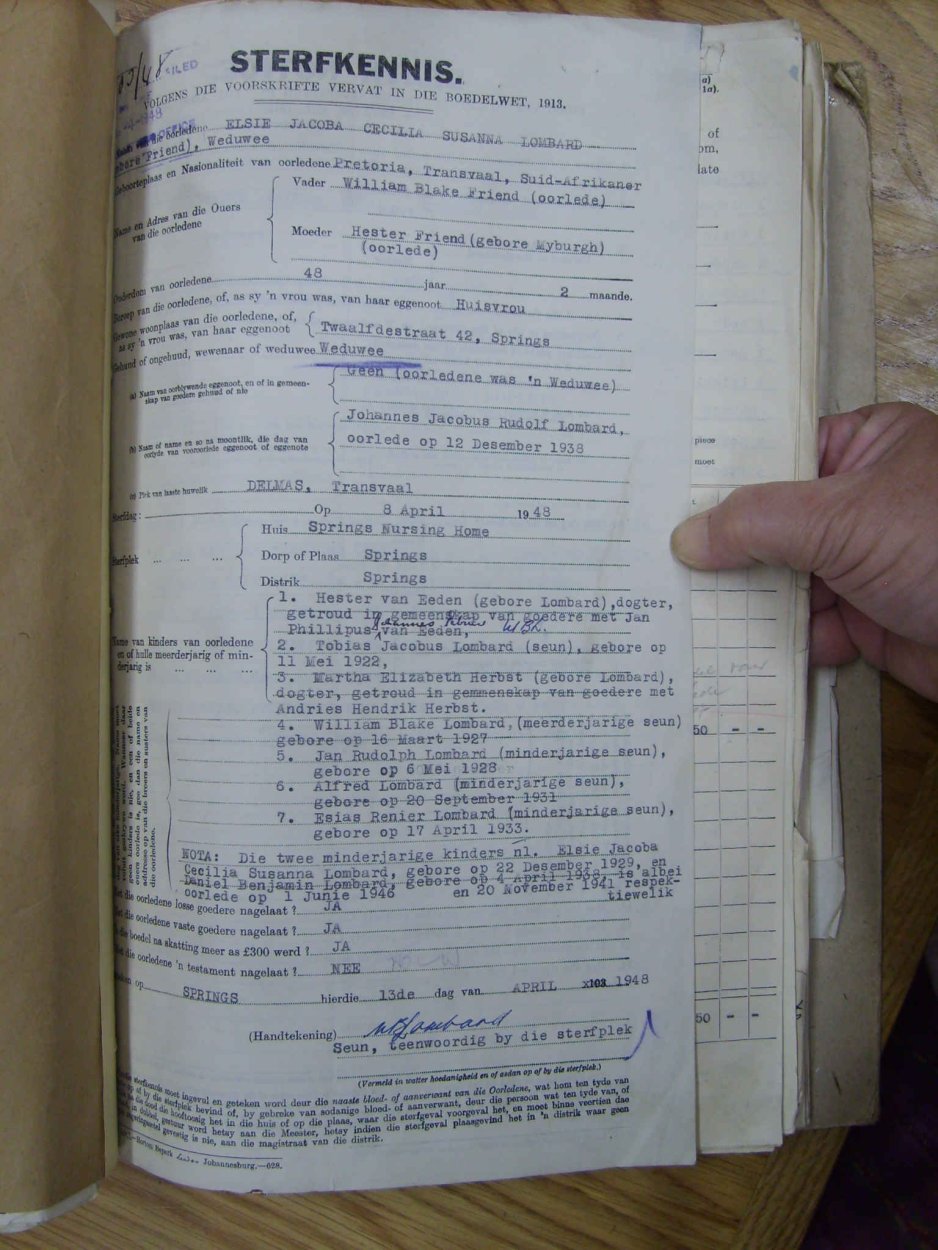 /48 FILED
STERFKENNIS.
VOLGENS DIE VOORSKRIFTE VERVAT IN DIE BOEDELWET, 1913.
OFFICE
die oorledene ELSIE JACOBA CECILIA SUSANNA LOMBARD
(gebore Friend), Weduwee
Geboorteplaas en Nasionaliteit van oorledene Pretoria, Transvaal, Suid-Afrikaner
Name en Adres van die Ouers van die oorledene
Vader William Blake Friend (oorlede)
Moeder Hester Friend (gebore Myburgh)
(oorlede)
Ouderdom van oorledene 48 jaar 2 maande.
Beroep van die oorledene, of, as sy 'n vrou was, van haar eggenoot Huisvrou
Gewone woonplaas van die oorledene, of, as sy 'n vrou was, van haar eggenoot Twaalfdestraat 42, Springs
Gehuud of ongehuud, wewenaar of weduwee Weduwee
(a) Naam van oorblywende eggenoot, en of in gemeenskap van goedere gehuud of nie Geen (oorledene was 'n Weduwee)
(b) Naam of name en so na moontlik, die dag van oorlyde van vooroorlede eggenoot of eggenote
Johannes Jacobus Rudolf Lombard,
oorlede op 12 Desember 1938
(c) Plek van laaste huwelik DELMAS, Transvaal
Sterfdag: Op 8 April 1948
Sterfplek ... ...
Huis Springs Nursing Home
Dorp of Plaas Springs
Distrik Springs
Name van kinders van oorledene en of hulle meerderjarig of minderjarig is
1. Hester van Eeden (gebore Lombard), dogter,
getroud in gemeenskap van goedere met Jan
Phillipus Johannes van Eeden,
2. Tobias Jacobus Lombard (seun), gebore op
11 Mei 1922,
3. Martha Elizabeth Herbst (gebore Lombard),
dogter, getroud in gemmenskap van goedere met
Andries Hendrik Herbst.
4. William Blake Lombard, (meerderjarige seun)
gebore op 16 Maart 1927
5. Jan Rudolph Lombard (minderjarige seun),
gebore op 6 Mei 1928
6. Alfred Lombard (minderjarige seun),
gebore op 20 September 1931
7. Esias Renier Lombard (minderjarige seun),
gebore op 17 April 1933.
NOTA: Die twee minderjarige kinders nl. Elsie Jacoba
Cecilia Susanna Lombard, gebore op 22 Desember 1929, en
Daniel Benjamin Lombard, gebore op 4 April 1938, is albei
oorlede op 1 Junie 1946 en 20 November 1941 respek-
tiewelik
die oorledene losse goedere nagelaat? JA
die oorledene vaste goedere nagelaat? JA
die boedel na skatting meer as £300 werd? JA
die oorledene 'n testament nagelaat? NEE
op SPRINGS hierdie 13de dag van APRIL 1948
(Handtekening) WB Lombard
Seun, teenwoordig by die sterfplek
(Vermeld in watter hoedanigheid en of asdan op of by die sterfplek.)
sterfkennis moet ingevul en geteken word deur die naaste bloed- of aanverwant van die Oorledene, wat hom ten tyde van
of by die sterfplek bevind of, by gebreke van sodanige bloed- of aanverwant, deur die persoon wat ten tyde van, of
die dood die hooftoesig het in die huis of op die plaas, waar die sterfgeval voorgeval het, en moet binne veertien dae
gestuur word hetsy aan die Meester, hetsy indien die sterfgeval plaasgevind het in 'n distrik waar geen
gevestig is nie, aan die magistraat van die distrik.
Beperk Johannesburg.—628.
of
om,
late
piece
moet
50 - -
50 - -